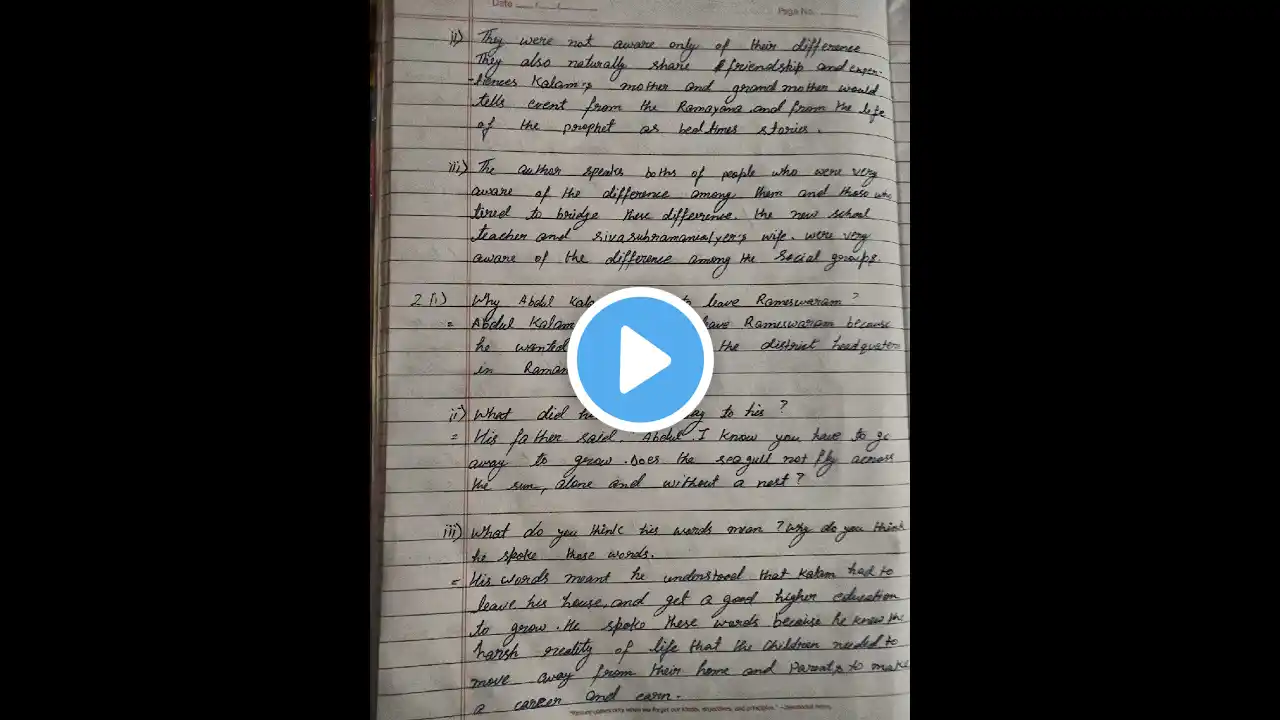 Date
Page No.
ii) They were not aware only of their difference
They also naturally share friendship and exper-
-iences Kalam's mother and grand mother would
tells event from the Ramayana and from the life
of the prophet as bedtimes stories.
iii) The author speaks boths of people who were very
aware of the difference among them and those who
tired to bridge these difference. the new school
teacher and sivasubramanialyer's wife. were very
aware of the difference among the social groups.
2 (i) Why Abdul to leave Rameswaram?
= Abdul Kalam Rameswaram because
he wanted the district headquaters
in
ii) What did to his?
= His father said. "Abdul. I know you have to go
away to grow. Does the seagull not fly across
the sun, alone and without a nest?
iii) What do you think his words mean? Why do you think
he spoke these words.
= His words meant he understood that Kalam had to
leave his house, and get a good higher education
to grow. He spoke these words because he knew the
harsh reality of life that the children needed to
move away from their home and Parents to make
a career and earn.